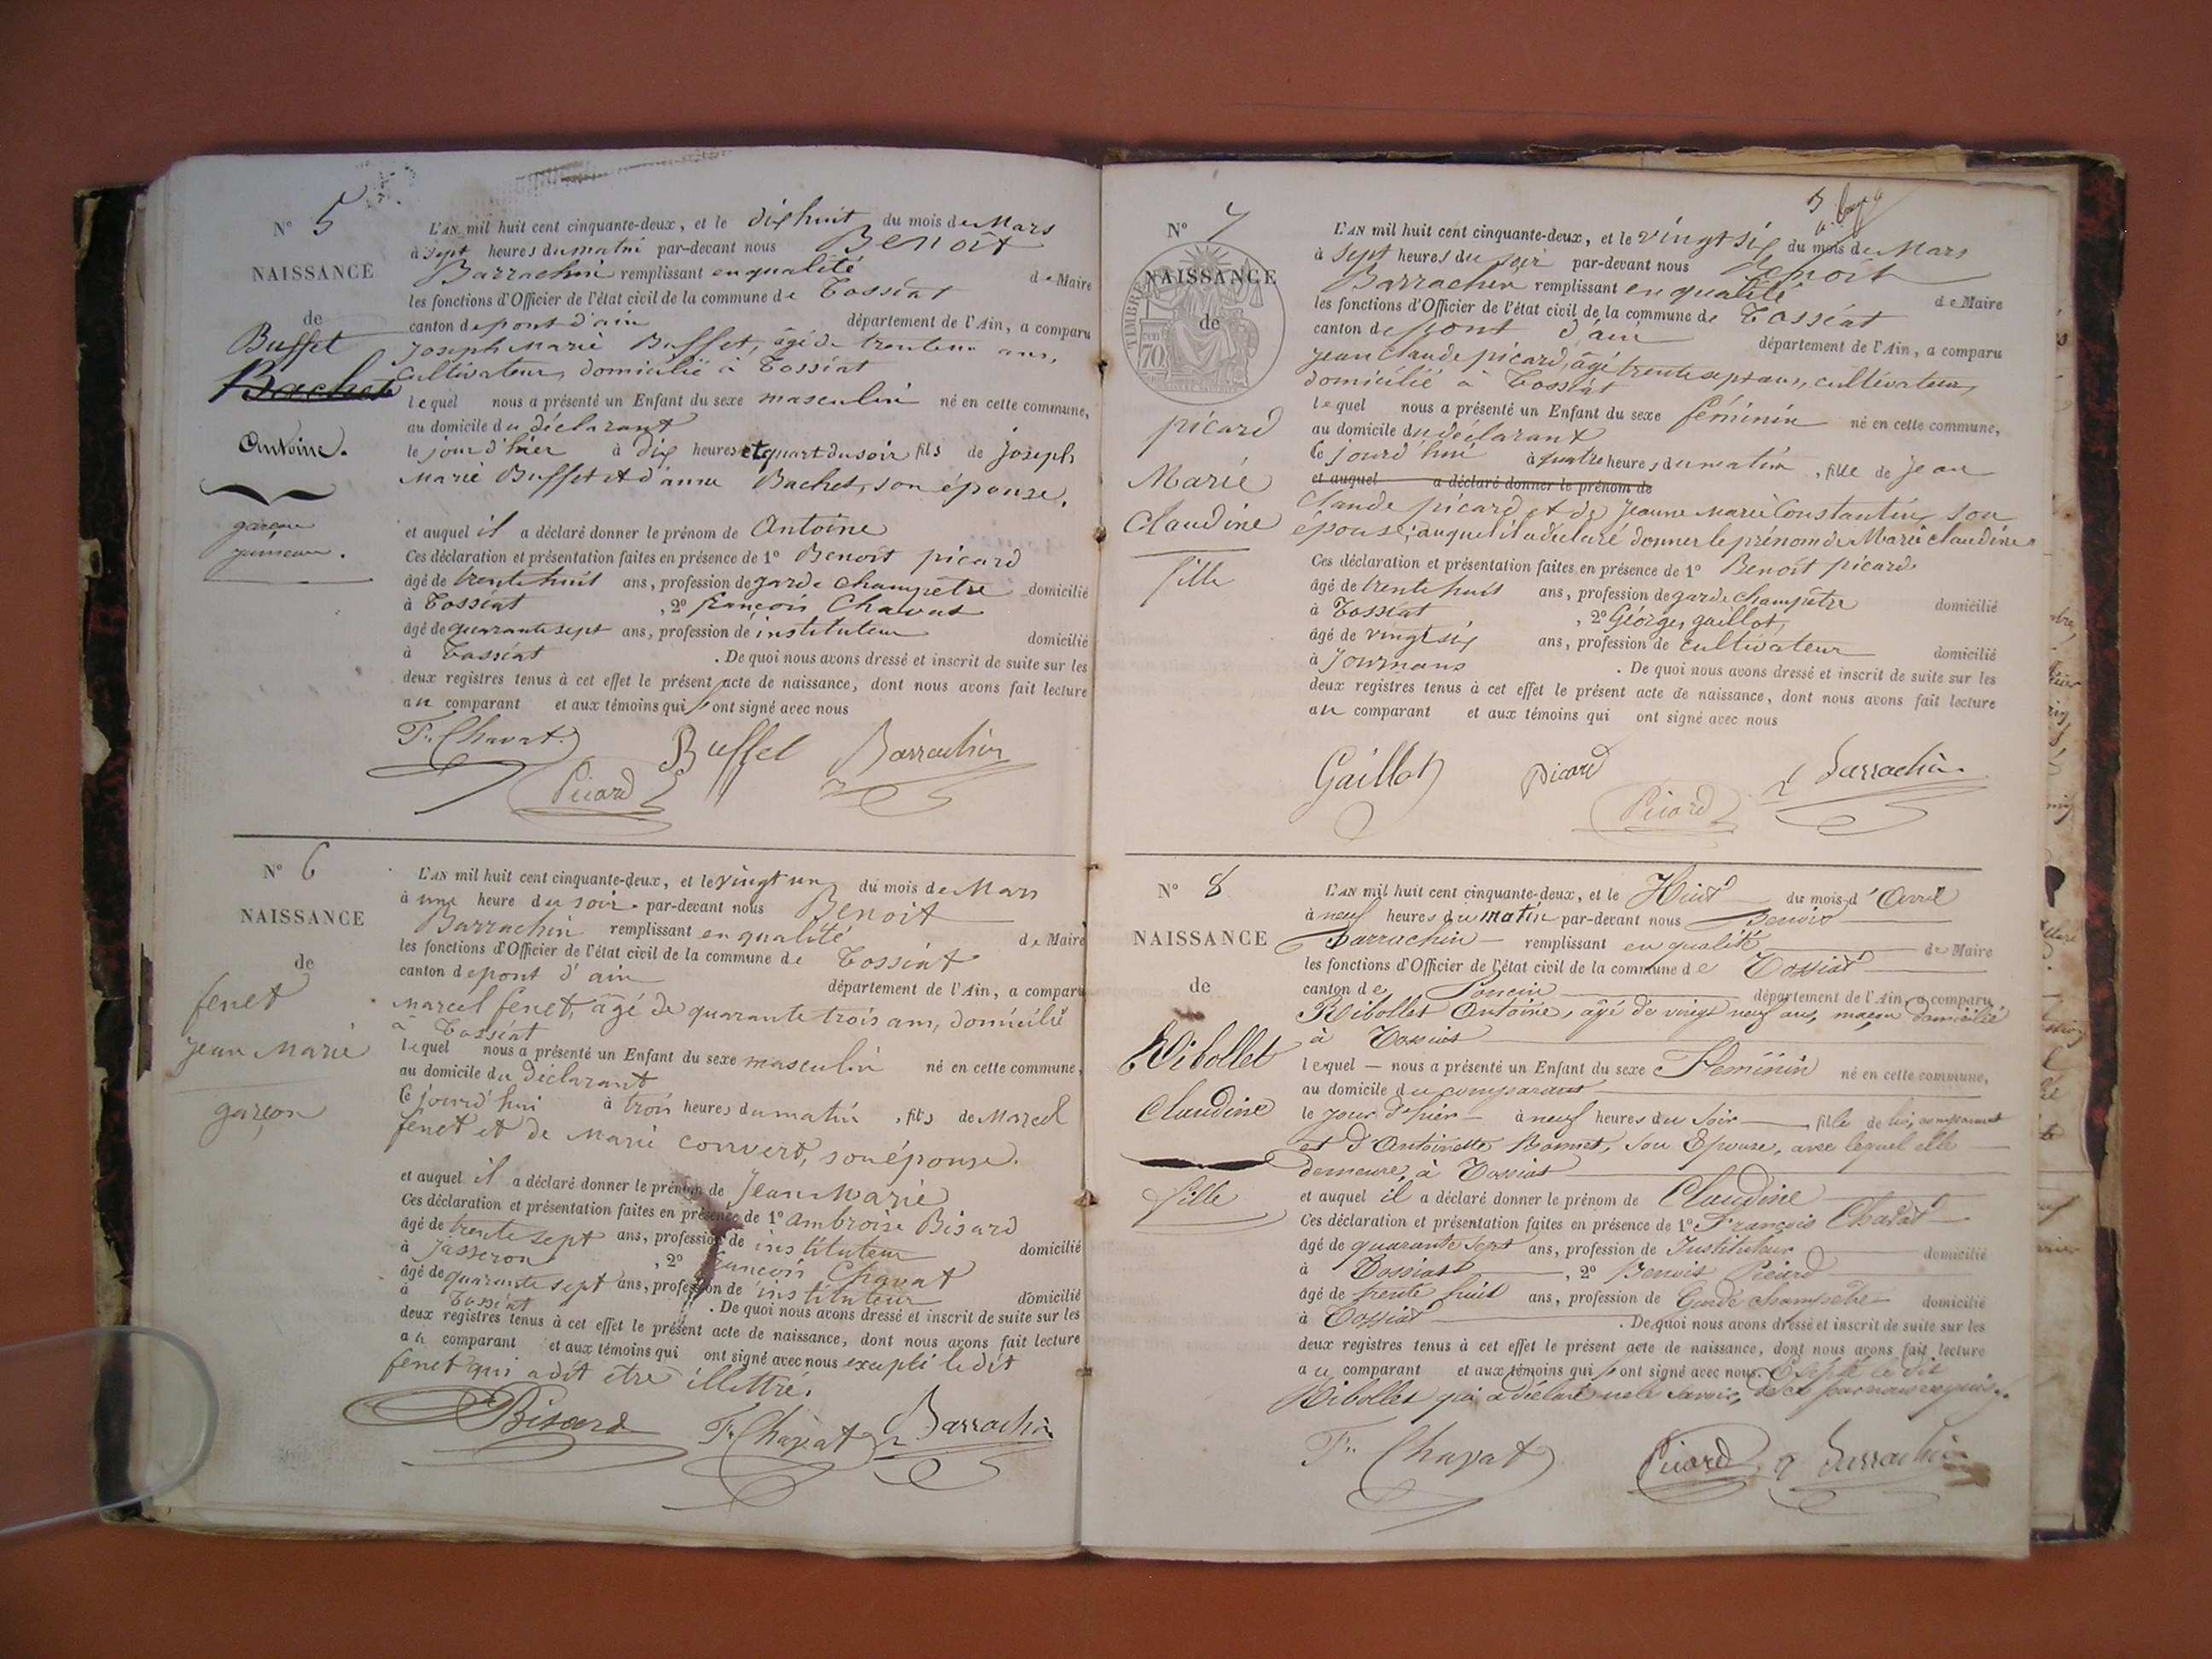 N° 5
NAISSANCE
de
Buffet
Bachet
Antoine.
garçon
jumeau.
L'AN mil huit cent cinquante-deux, et le dix huit du mois de Mars
à sept heures du matin par-devant nous Benoît
Barrachin remplissant en qualité de Maire
les fonctions d'Officier de l'état civil de la commune de Tossiat
canton de pont d'ain département de l'Ain, a comparu
Joseph Marie Buffet, âgé de trente ans,
Cultivateur, domicilié à Tossiat
lequel nous a présenté un Enfant du sexe masculin né en cette commune,
au domicile du déclarant
le jour d'hier à dix heures et quart du soir fils de Joseph
Marie Buffet et d'anne Bachet, son épouse,
et auquel il a déclaré donner le prénom de Antoine
Ces déclaration et présentation faites en présence de 1° Benoit picard
âgé de trente huit ans, profession de garde champetre domicilié
à Tossiat , 2° françois Chavat
âgé de quarante sept ans, profession de instituteur domicilié
à Tossiat . De quoi nous avons dressé et inscrit de suite sur les
deux registres tenus à cet effet le présent acte de naissance, dont nous avons fait lecture
au comparant et aux témoins qui ont signé avec nous
F. Chavat Buffet Barrachin
Picard
N° 6
NAISSANCE
de
fenet
Jean Marie
garçon
L'AN mil huit cent cinquante-deux, et le vingt un du mois de Mars
à une heure du soir par-devant nous Benoit
Barrachin remplissant en qualité de Maire
les fonctions d'Officier de l'état civil de la commune de Tossiat
canton de pont d'ain département de l'Ain, a comparu
Marcel fenet, âgé de quarante trois ans, domicilié
à Tossiat
lequel nous a présenté un Enfant du sexe masculin né en cette commune,
au domicile du déclarant
Ce jourd'hui à trois heures du matin , fils de Marcel
fenet et de Marie convert, son épouse.
et auquel il a déclaré donner le prénom de Jean Marie
Ces déclaration et présentation faites en présence de 1° ambroise Bisard
âgé de trente sept ans, profession de instituteur domicilié
à Jasseron , 2° françois Chavat
âgé de quarante sept ans, profession de instituteur domicilié
à Tossiat . De quoi nous avons dressé et inscrit de suite sur les
deux registres tenus à cet effet le présent acte de naissance, dont nous avons fait lecture
au comparant et aux témoins qui ont signé avec nous excepté le dit
fenet qui a dit être illettré.
Bisard F. Chavat Barrachin
N° 7
TIMBRE
70
NAISSANCE
de
picard
Marie
Claudine
fille
L'AN mil huit cent cinquante-deux, et le vingt six du mois de Mars
à sept heures du soir par-devant nous Benoit
Barrachin remplissant en qualité de Maire
les fonctions d'Officier de l'état civil de la commune de Tossiat
canton de pont d'ain département de l'Ain, a comparu
Jean Claude picard, âgé trente sept ans, cultivateur,
domicilié à Tossiat
lequel nous a présenté un Enfant du sexe féminin né en cette commune,
au domicile du déclarant
Ce jourd'hui à quatre heures du matin , fille de jean
et auquel a déclaré donner le prénom de
Claude picard et de Jeanne Marie Constantin, son
épouse; auquel il a déclaré donner le prénom de Marie Claudine
Ces déclaration et présentation faites en présence de 1° Benoit picard
âgé de trente huit ans, profession de garde champetre domicilié
à Tossiat , 2° Géorges gaillot,
âgé de vingt six ans, profession de cultivateur domicilié
à Journans . De quoi nous avons dressé et inscrit de suite sur les
deux registres tenus à cet effet le présent acte de naissance, dont nous avons fait lecture
au comparant et aux témoins qui ont signé avec nous
Gaillot picard Barrachin
Picard
N° 8
NAISSANCE
de
Ribollet
Claudine
fille
L'AN mil huit cent cinquante-deux, et le Huit du mois d'Avril
à neuf heures du matin par-devant nous Benoit
Barrachin remplissant en qualité de Maire
les fonctions d'Officier de l'état civil de la commune de Tossiat
canton de Poncin département de l'Ain, a comparu
Ribollet Antoine, âgé de vingt neuf ans, maçon domicilié
à Tossiat
lequel nous a présenté un Enfant du sexe Féminin né en cette commune,
au domicile du comparant
le jour d'hier à neuf heures du soir , fille de lui, comparant
et d'Antoinette Bonnet, son Epouse, avec lequel elle
demeure, à Tossiat
et auquel il a déclaré donner le prénom de Claudine
Ces déclaration et présentation faites en présence de 1° François Chavat
âgé de quarante sept ans, profession de Instituteur domicilié
à Tossiat , 2° Benoit Picard
âgé de trente huit ans, profession de Garde champetre domicilié
à Tossiat . De quoi nous avons dressé et inscrit de suite sur les
deux registres tenus à cet effet le présent acte de naissance, dont nous avons fait lecture
au comparant et aux témoins qui ont signé avec nous. Excepté le dit
Ribollet qui a déclaré ne le savoir, de ce par nous requis.
F. Chavat Picard Barrachin